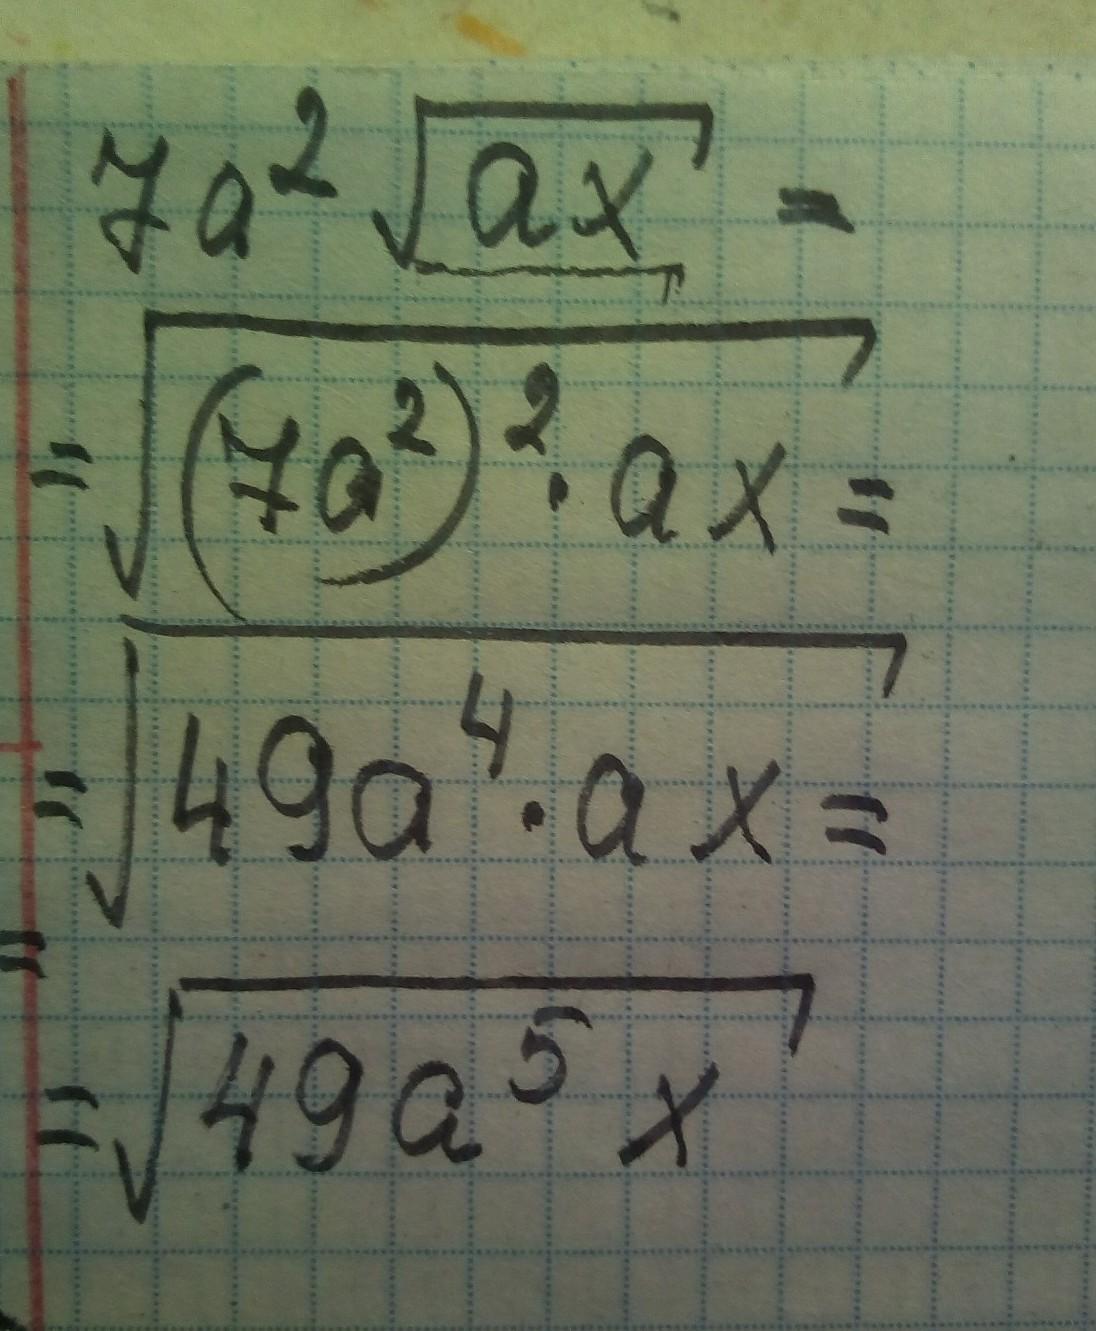 7a²√ax =
=√(7a²)²·ax=
=√49a⁴·ax=
=
=√49a⁵x